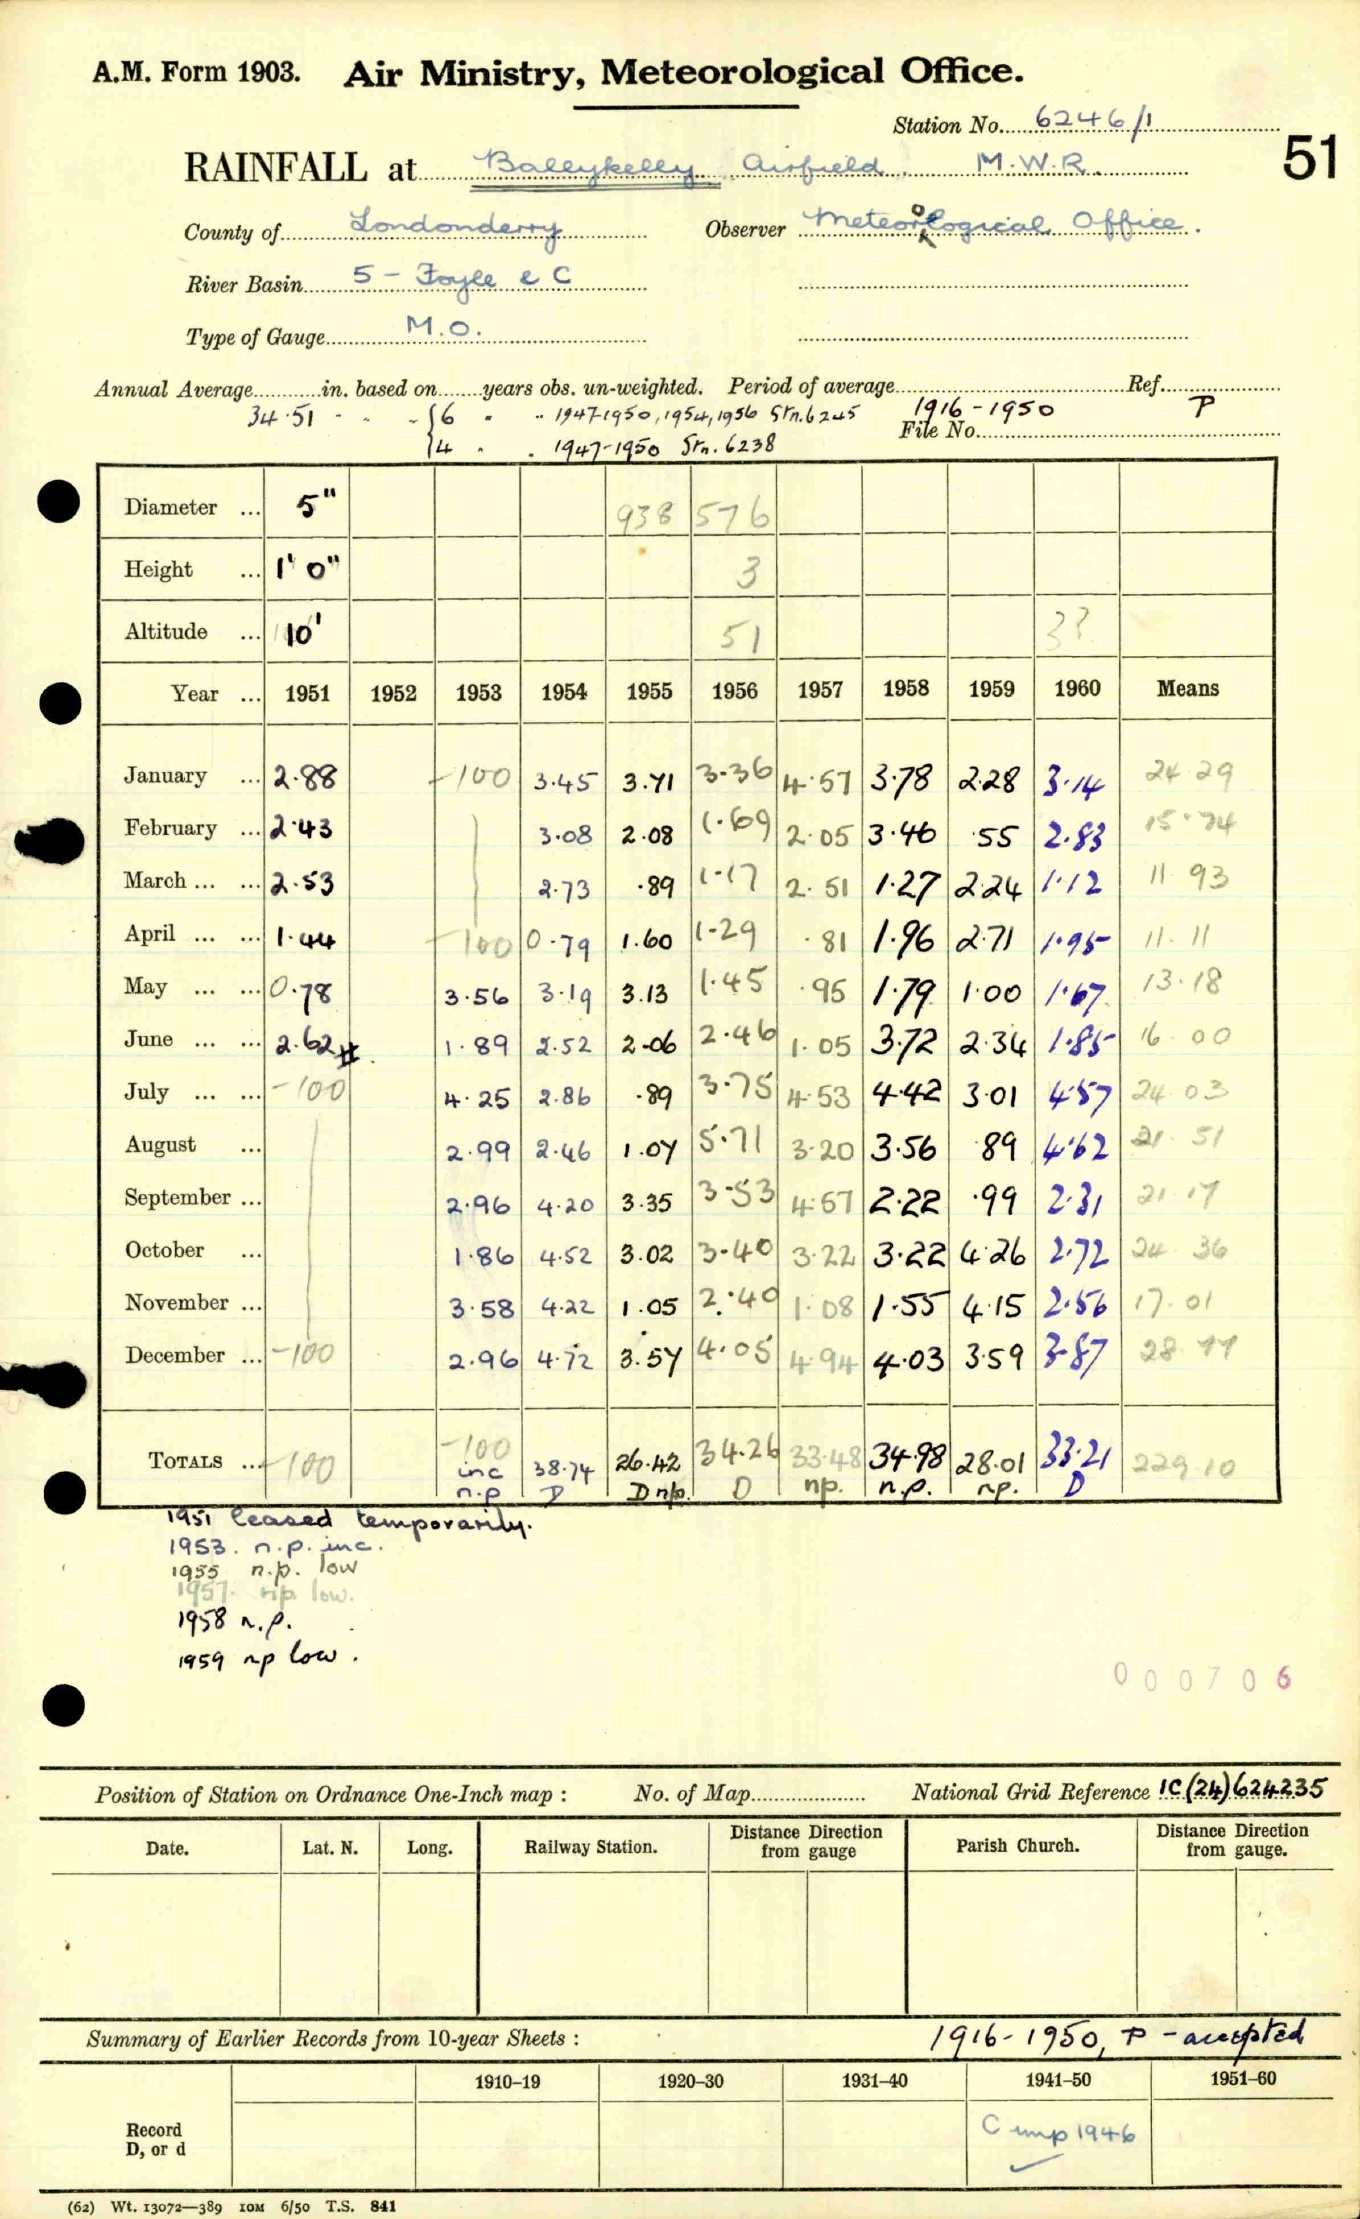 A.M. Form 1903. Air Ministry, Meteorological Office.
Station No. 6246/1
51
RAINFALL at Ballykelly Airfield. M.W.R.
County of Londonderry Observer Meteorological Office.
River Basin 5 - Foyle & C
Type of Gauge M.O.
Annual Average in. based on years obs. un-weighted. Period of average Ref.
34.51 - - - {6 " " 1947-1950, 1954, 1956 Stn. 6245 1916-1950 P
{4 " . 1947-1950 Stn. 6238 File No.
Diameter ... 5" 938 576
Height ... 1' 0" 3
Altitude ... 10' 51 3?
Year ... 1951 1952 1953 1954 1955 1956 1957 1958 1959 1960 Means
January ... 2.88 -100 3.45 3.71 3.36 4.57 3.78 2.28 3.14 24.29
February ... 2.43 3.08 2.08 1.69 2.05 3.46 .55 2.83 15.74
March ... ... 2.53 2.73 .89 1.17 2.51 1.27 2.24 1.12 11 93
April ... ... 1.44 -100 0.79 1.60 1.29 .81 1.96 2.71 1.95 11.11
May ... ... 0.78 3.56 3.19 3.13 1.45 .95 1.79 1.00 1.67 13.18
June ... ... 2.62 # 1.89 2.52 2.06 2.46 1.05 3.72 2.34 1.85 16 00
July ... ... -100 4.25 2.86 .89 3.75 4.53 4.42 3.01 4.57 24 03
August ... 2.99 2.46 1.07 5.71 3.20 3.56 .89 4.62 21 51
September ... 2.96 4.20 3.35 3.53 4.57 2.22 .99 2.31 21 17
October ... 1.86 4.52 3.02 3.40 3.22 3.22 4.26 2.72 24 36
November ... 3.58 4.22 1.05 2.40 1.08 1.55 4.15 2.56 17.01
December ... -100 2.96 4.72 3.57 4.05 4.94 4.03 3.59 3.87 28 77
TOTALS ... -100 -100 38.74 26.42 34.26 33.48 34.98 28.01 33.21 229.10
inc
n.p D D n/p. D np. n.p. np. D
1951 leased temporarily.
1953. n.p. inc.
1955 n.p. low
1957. np. low.
1958 n.p.
1959 np low.
000706
Position of Station on Ordnance One-Inch map : No. of Map National Grid Reference IC(24)624235
Date. Lat. N. Long. Railway Station. Distance Direction from gauge Parish Church. Distance Direction from gauge.
Summary of Earlier Records from 10-year Sheets : 1916-1950, P - accepted
1910–19 1920–30 1931–40 1941–50 1951–60
Record
D, or d
1946
(62) Wt. 13072—389 10M 6/50 T.S. 841